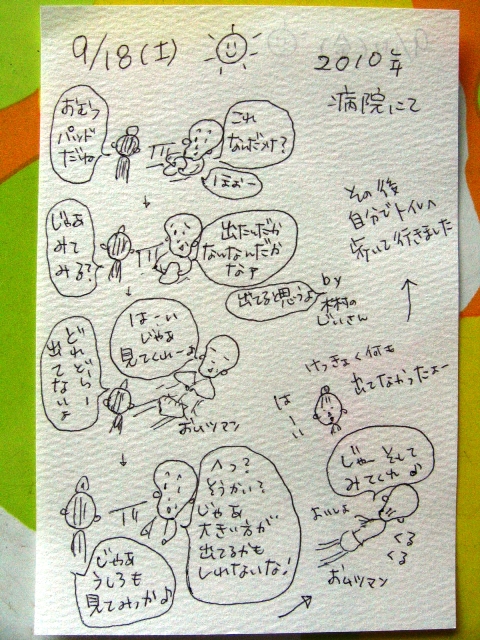 9/18(土)
2010年
病院にて
これ
なんだっけ?
おむつ
パッドだね
ほぉー
じゃあ
みて
みる?
出たんだか
ないなんだか
なァ
出てると思うよ
はーい
じゃあ
見てくれーょ
どれどーらー
出て
ないよ
おムツマン
へっ?
そうかい?
じゃあ
大きい方が
出てるかも
しれないな!
じゃあ
うしろも
見てみっか♪
じゃー そして
みてくれ♪
よいしょ
くる
くる
おムツマン
はーい
けっきょく何も
出てなかったよー
その後
自分でトイレへ
歩いて行きました
by
木村の
じいさん